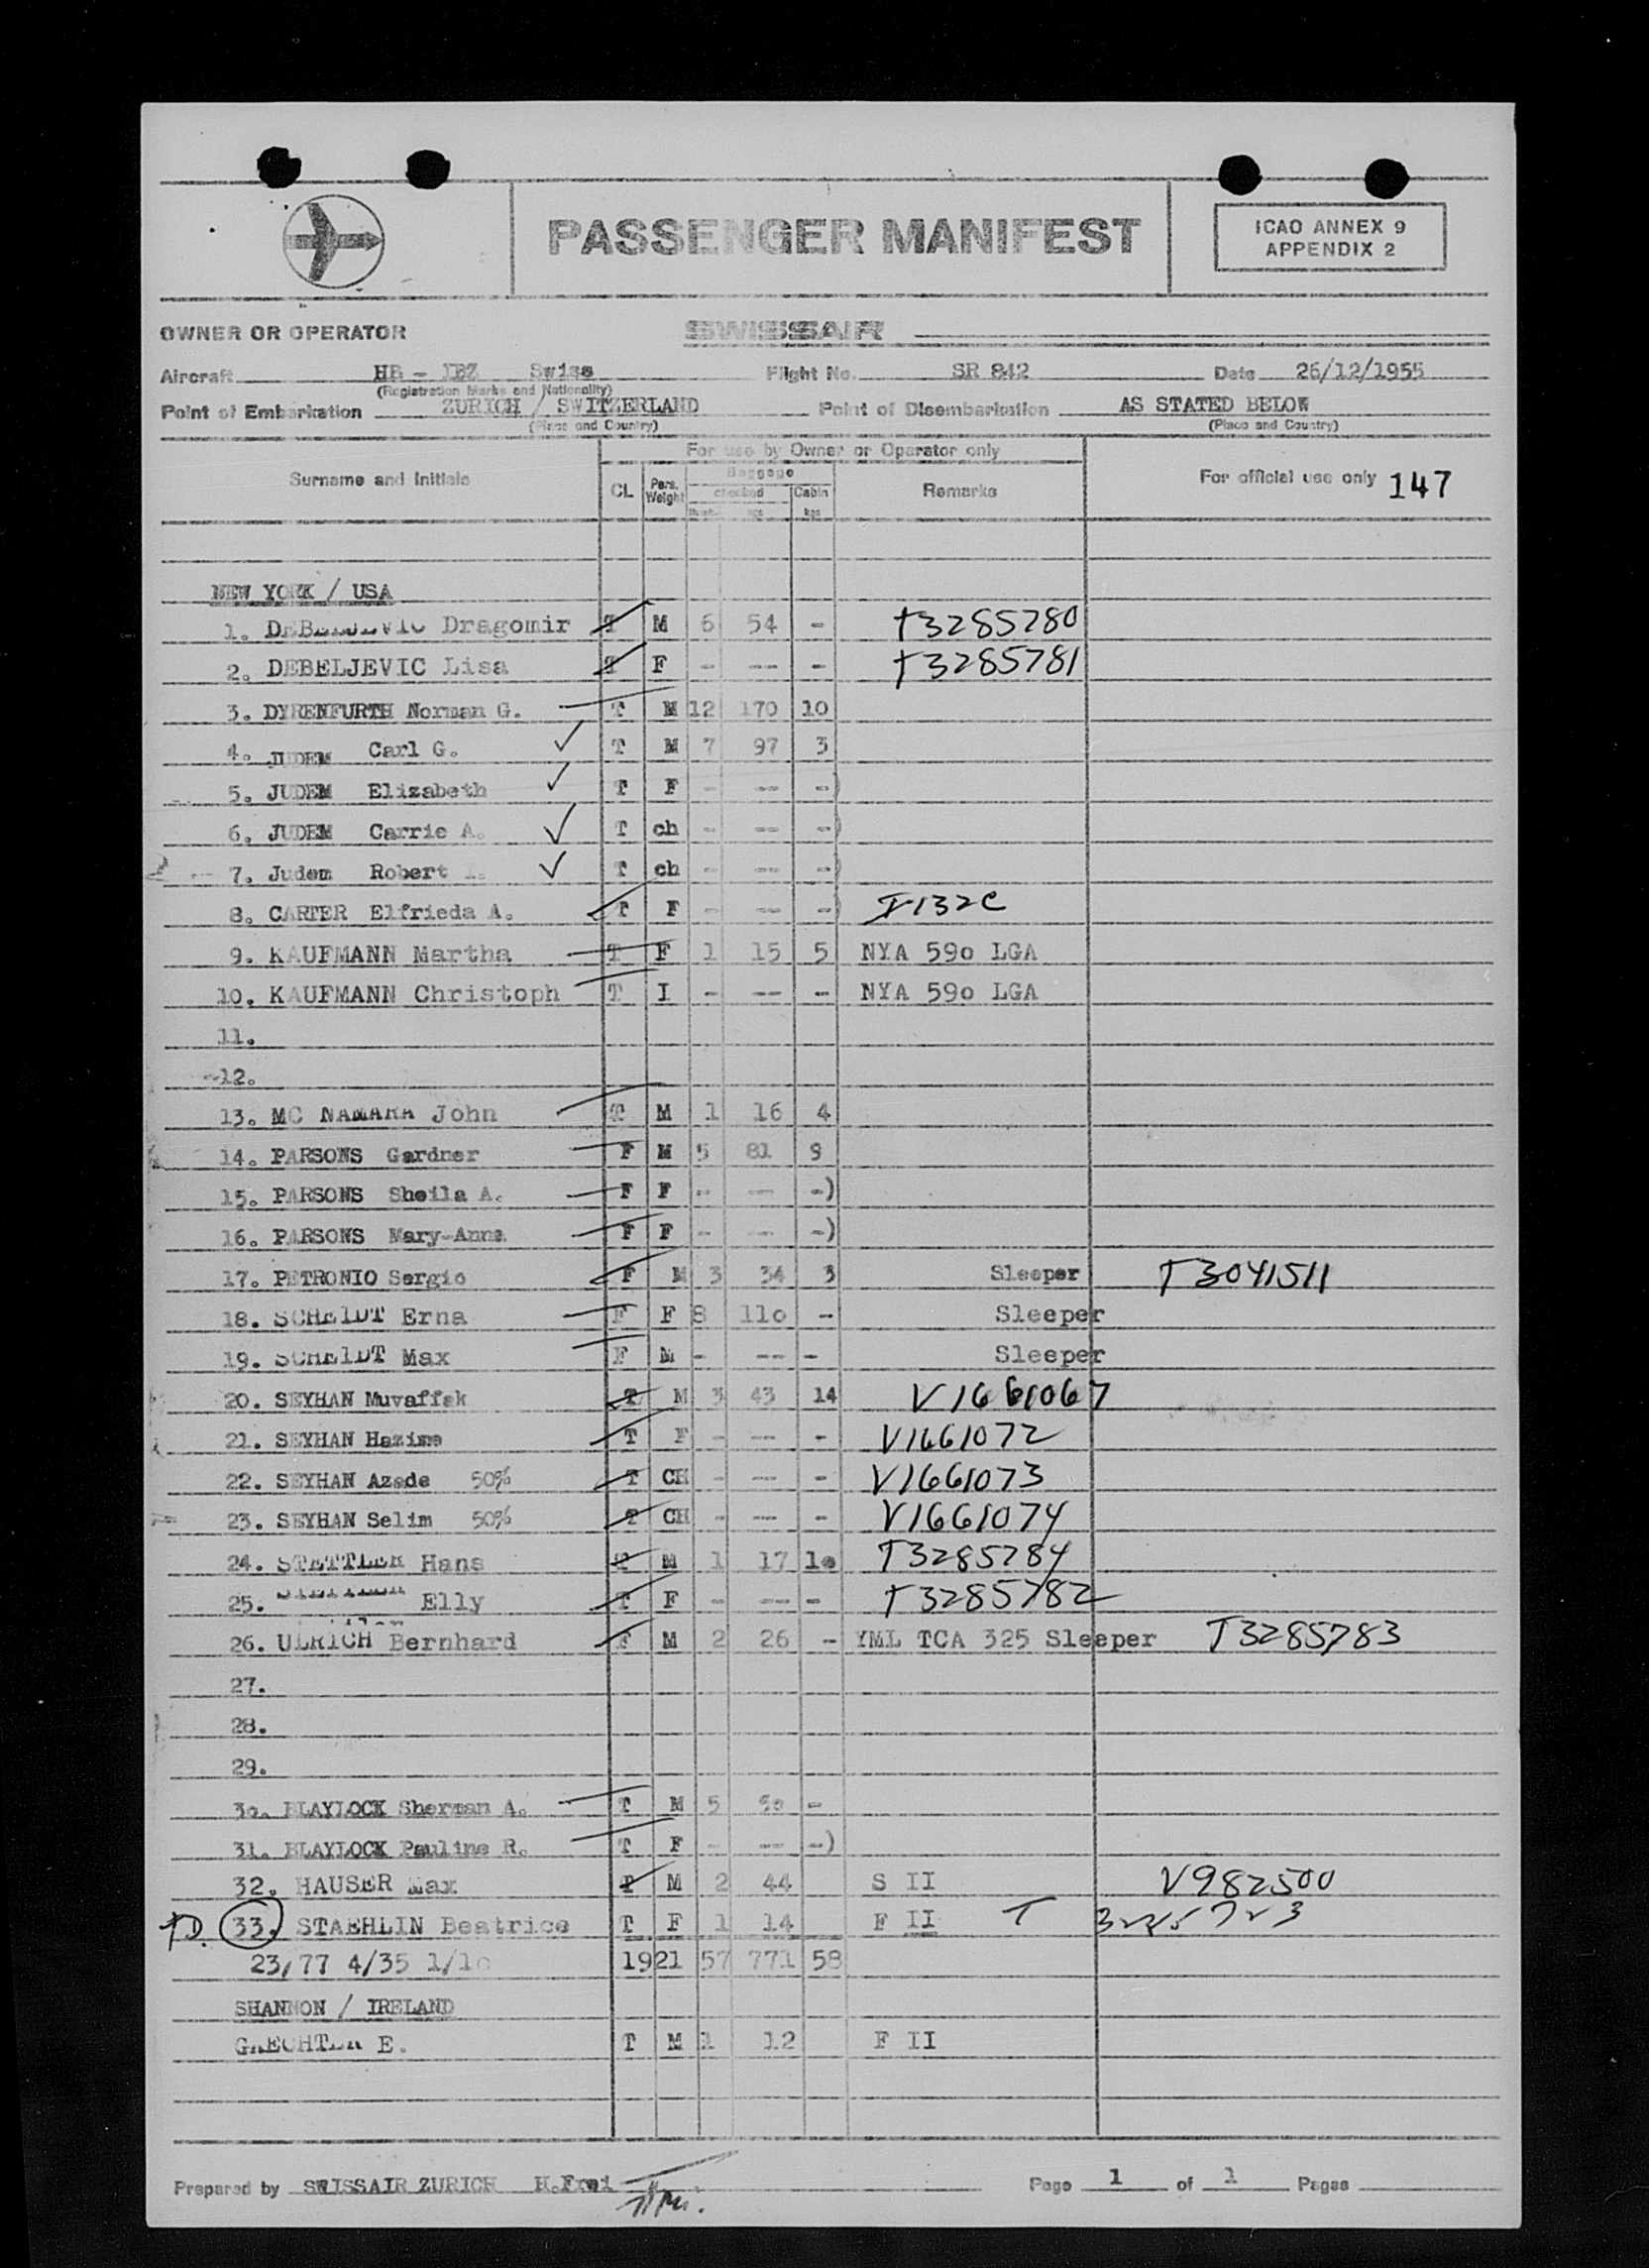 PASSENGER MANIFEST
ICAO ANNEX 9
APPENDIX 2
OWNER OR OPERATOR SWISSAIR
Aircraft HB - IBZ Swiss Flight No. SR 842 Date 26/12/1955
(Registration Marks and Nationality)
Point of Embarkation ZURICH / SWITZERLAND Point of Disembarkation AS STATED BELOW
(Place and Country) (Place and Country)
For use by Owner or Operator only
Surname and Initials CL Pers. Weight Baggage checked Cabin kgs Remarks For official use only 147
NEW YORK / USA
1. DEBELJEVIC Dragomir T M 6 54 - T3285780
2. DEBELJEVIC Lisa T F - -- - T3285781
3. DYRENFURTH Norman G. T M 12 170 10
4. JUDEM Carl G. T M 7 97 3
5. JUDEM Elizabeth T F - -- -)
6. JUDEM Carrie A. T ch - -- -)
7. Judem Robert T ch - -- -)
8. CARTER Elfrieda A. T F - -- -) I-132C
9. KAUFMANN Martha T F 1 15 5 NYA 59o LGA
10. KAUFMANN Christoph T I - -- - NYA 59o LGA
11.
12.
13. MC NAMARA John T M 1 16 4
14. PARSONS Gardner F M 5 81 9
15. PARSONS Sheila A. F F - -- -)
16. PARSONS Mary-Anne F F - -- -)
17. PETRONIO Sergio F M 3 34 3 Sleeper T3041511
18. SCHEIDT Erna F F 8 11o - Sleeper
19. SCHEIDT Max F M - -- - Sleeper
20. SEYHAN Muvaffak T M 3 43 14 V1661067
21. SEYHAN Hazime T F - -- - V1661072
22. SEYHAN Azade 50% T CH - -- - V1661073
23. SEYHAN Selim 50% T CH - -- - V1661074
24. STETTLER Hans T M 1 17 1o T3285784
25. STETTLER Elly T F - -- - T3285782
26. ULRICH Bernhard F M 2 26 - YML TCA 325 Sleeper T3285783
27.
28.
29.
3o. BLAYLOCK Sherman A. T M 5 5o -
31. BLAYLOCK Pauline R. T F - -- -)
32. HAUSER Max T M 2 44 S II V982500
TD. 33. STAEHLIN Beatrice T F 1 14 F II T
23/77 4/35 1/1o 1921 57 771 58
SHANNON / IRELAND
GAECHTER E. T M 1 12 F II
Prepared by SWISSAIR ZURICH H.Frei Page 1 of 1 Pages